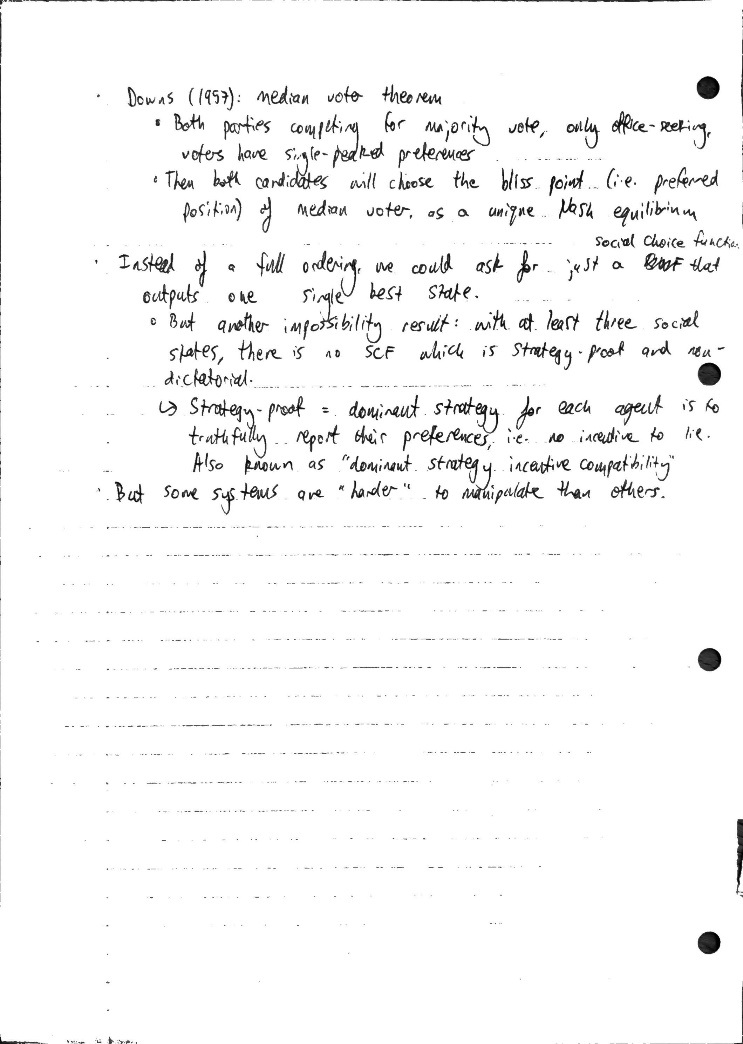 · Downs (1957): median voter theorem
• Both parties competing for majority vote, only office-seeking,
voters have single-peaked preferences
• Then both candidates will choose the bliss point (i.e. preferred
position) of median voter, as a unique Nash equilibrium
social choice function
· Instead of a full ordering, we could ask for just a that
outputs one single best state.
• But another impossibility result: with at least three social
states, there is no SCF which is strategy-proof and non-
dictatorial.
↳ Strategy-proof = dominant strategy for each agent is to
truthfully report their preferences, i.e. no incentive to lie.
Also known as "dominant strategy incentive compatibility"
· But some systems are "harder" to manipulate than others.